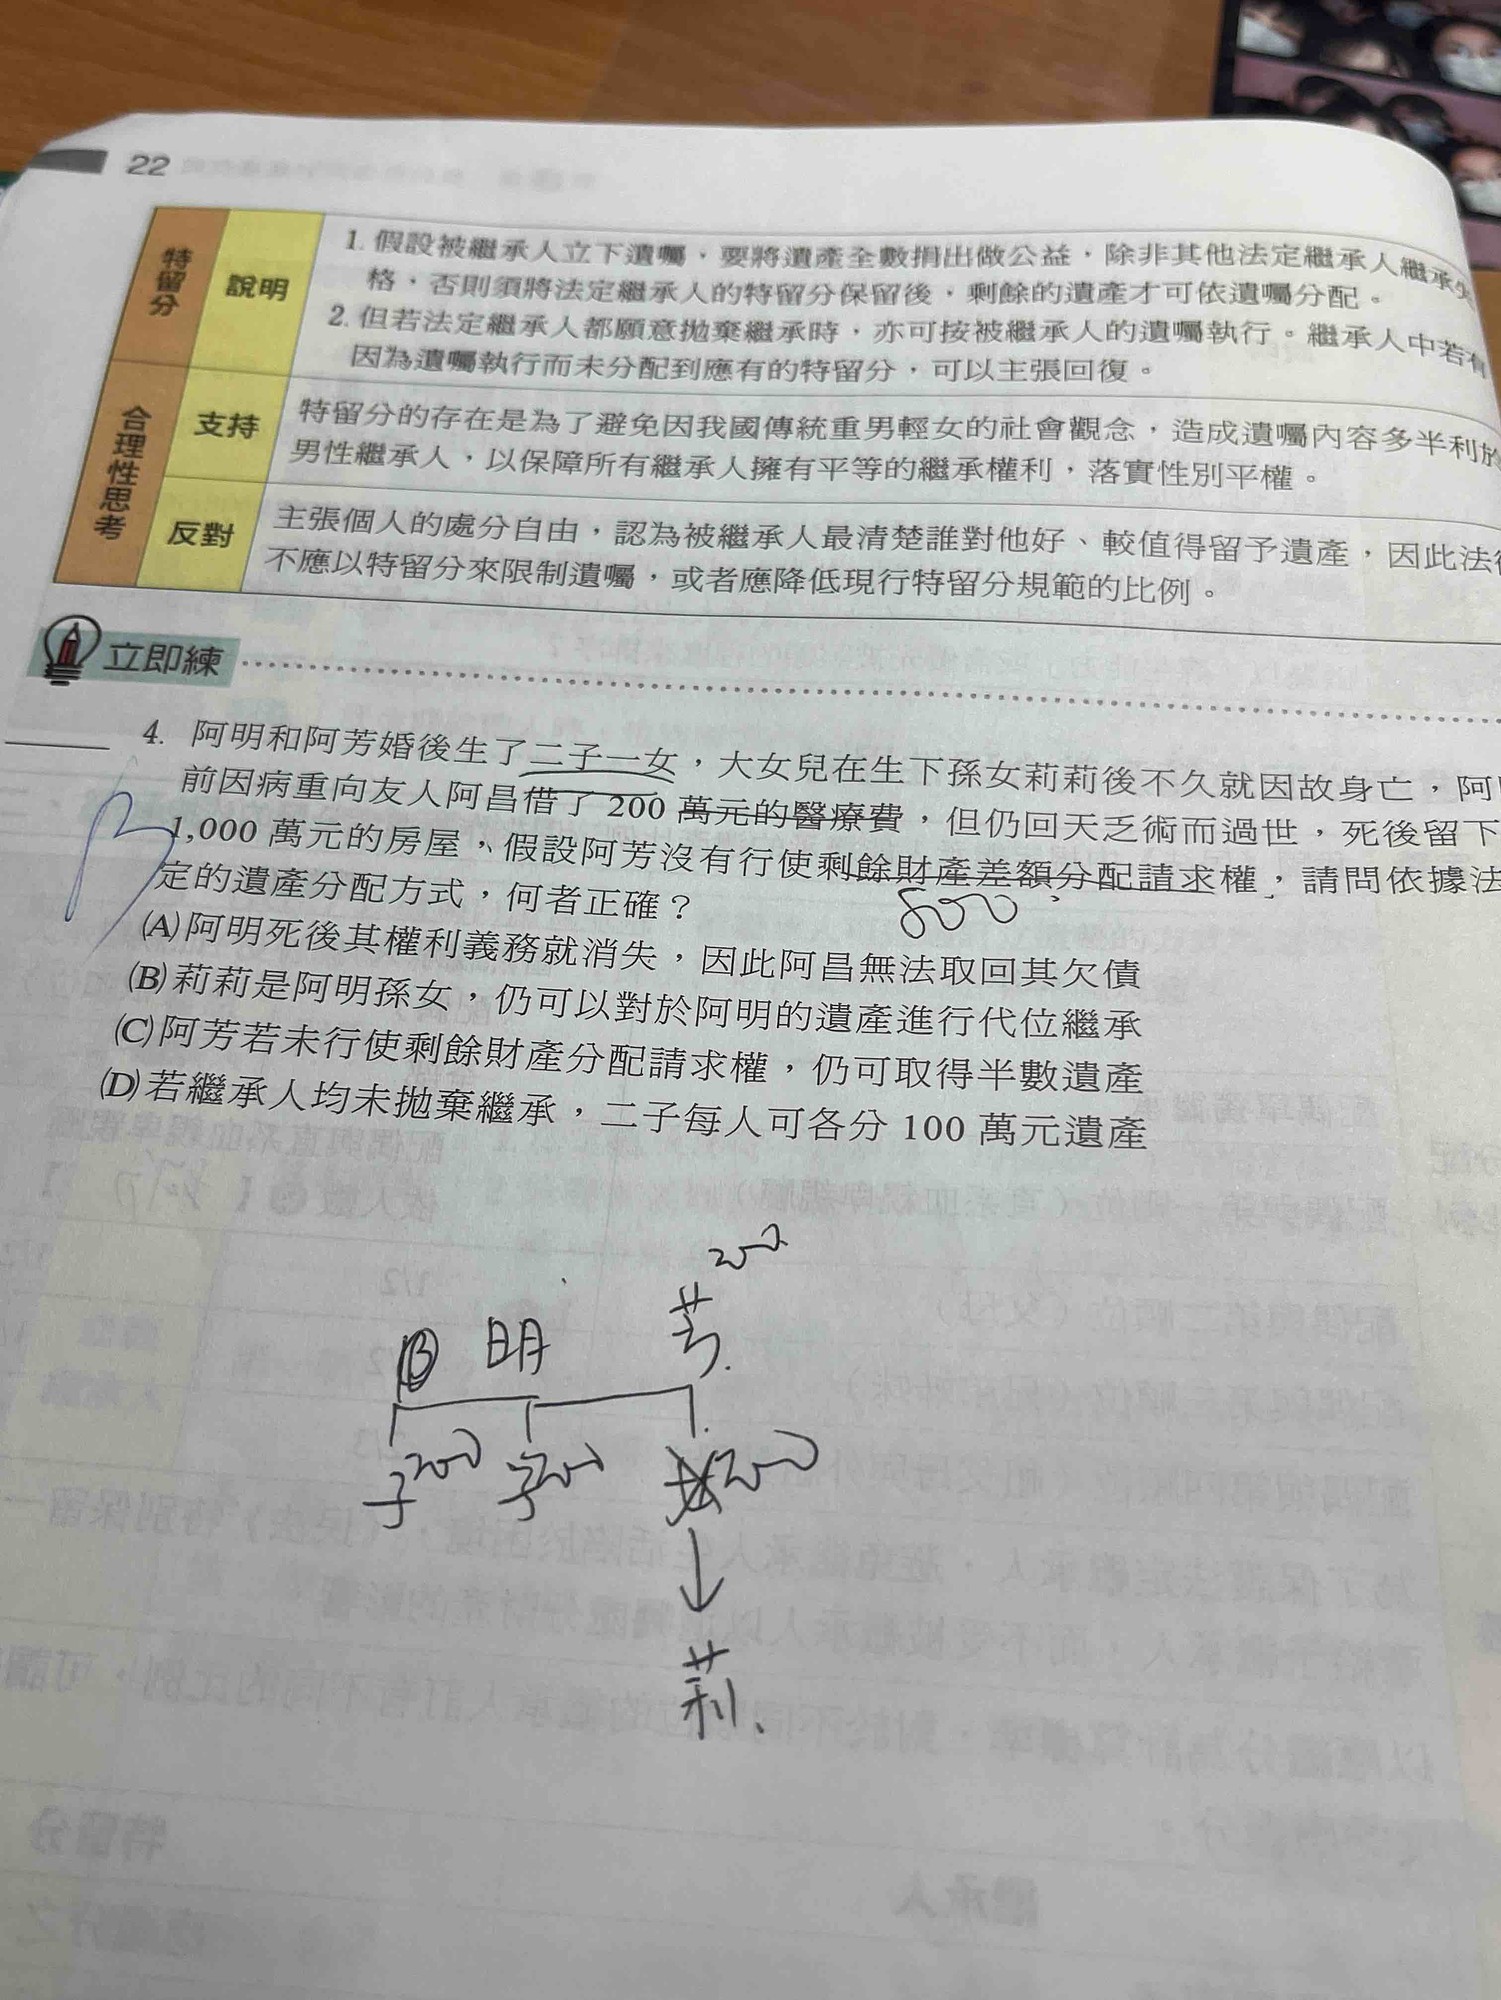 22
特留分
說明
1. 假設被繼承人立下遺囑，要將遺產全數捐出做公益，除非其他法定繼承人繼承失
格，否則須將法定繼承人的特留分保留後，剩餘的遺產才可依遺囑分配。
2. 但若法定繼承人都願意拋棄繼承時，亦可按被繼承人的遺囑執行。繼承人中若有
因為遺囑執行而未分配到應有的特留分，可以主張回復。
合理性思考
支持
特留分的存在是為了避免因我國傳統重男輕女的社會觀念，造成遺囑內容多半利於
男性繼承人，以保障所有繼承人擁有平等的繼承權利，落實性別平權。
反對
主張個人的處分自由，認為被繼承人最清楚誰對他好、較值得留予遺產，因此法律
不應以特留分來限制遺囑，或者應降低現行特留分規範的比例。
立即練
B
4. 阿明和阿芳婚後生了二子一女，大女兒在生下孫女莉莉後不久就因故身亡，阿
前因病重向友人阿昌借了 200 萬元的醫療費，但仍回天乏術而過世，死後留下
1,000 萬元的房屋，假設阿芳沒有行使剩餘財產差額分配請求權，請問依據法
定的遺產分配方式，何者正確？
800
(A)阿明死後其權利義務就消失，因此阿昌無法取回其欠債
(B)莉莉是阿明孫女，仍可以對於阿明的遺產進行代位繼承
(C)阿芳若未行使剩餘財產分配請求權，仍可取得半數遺產
(D)若繼承人均未拋棄繼承，二子每人可各分 100 萬元遺產
200
明 芳
子200 子200 女200
莉